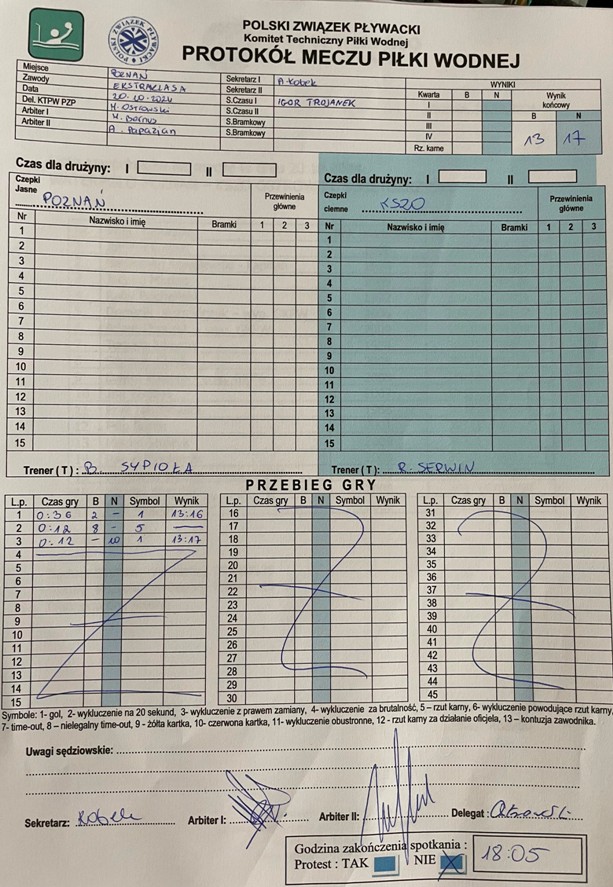 POLSKI ZWIĄZEK PŁYWACKI
Komitet Techniczny Piłki Wodnej
PROTOKÓŁ MECZU PIŁKI WODNEJ
POLSKI ZWIĄZEK PŁYWACKI
Miejsce POZNAŃ Sekretarz I A Kobek WYNIKI
Zawody EKSTRAKLASA Sekretarz II Kwarta B N Wynik końcowy
Data 20-10-2024 S.Czasu I IGOR TROJANEK I B N
Del. KTPW PZP M. OSTROWSKI S.Czasu II II 13 17
Arbiter I S.Bramkowy III
Arbiter II A. Papazian S.Bramkowy IV
Rz. karne
Czas dla drużyny: I II
Czas dla drużyny: I II
Czepki Jasne POZNAŃ Przewinienia główne
Nr Nazwisko i imię Bramki 1 2 3
1
2
3
4
5
6
7
8
9
10
11
12
13
14
15
Trener ( T ) : B. SYPIOŁA
Czepki ciemne KSZO Przewinienia główne
Nr Nazwisko i imię Bramki 1 2 3
1
2
3
4
5
6
7
8
9
10
11
12
13
14
15
Trener ( T ) : R. SERWIN
PRZEBIEG GRY
L.p. Czas gry B N Symbol Wynik
1 0:36 2 - 1 13:16
2 0:18 8 - 5 —
3 0:12 - 10 1 13:17
4
5
6
7
8
9
10
11
12
13
14
15
L.p. Czas gry B N Symbol Wynik
16
17
18
19
20
21
22
23
24
25
26
27
28
29
30
L.p. Czas gry B N Symbol Wynik
31
32
33
34
35
36
37
38
39
40
41
42
43
44
45
Symbole: 1- gol, 2- wykluczenie na 20 sekund, 3- wykluczenie z prawem zamiany, 4- wykluczenie za brutalność, 5 – rzut karny, 6- wykluczenie powodujące rzut karny,
7- time-out, 8 – nielegalny time-out, 9 - żółta kartka, 10- czerwona kartka, 11- wykluczenie obustronne, 12 - rzut karny za działanie oficjela, 13 – kontuzja zawodnika.
Uwagi sędziowskie:
Sekretarz: Kobek Arbiter I: Arbiter II: Delegat :
Godzina zakończenia spotkania : 18:05
Protest : TAK NIE